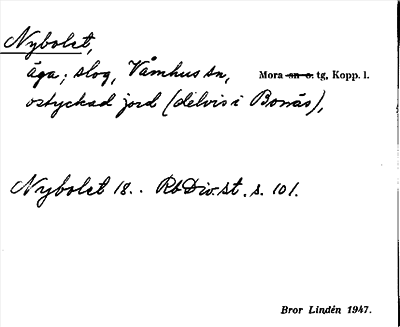 Nybolet,
äga; slog, Våmhus sn, Mora sn o. tg, Kopp. l.
ostyckad jord (delvis i Bonäs),
Nybolet 18.. RbDiv.st. s. 101.
Bror Lindén 1947.